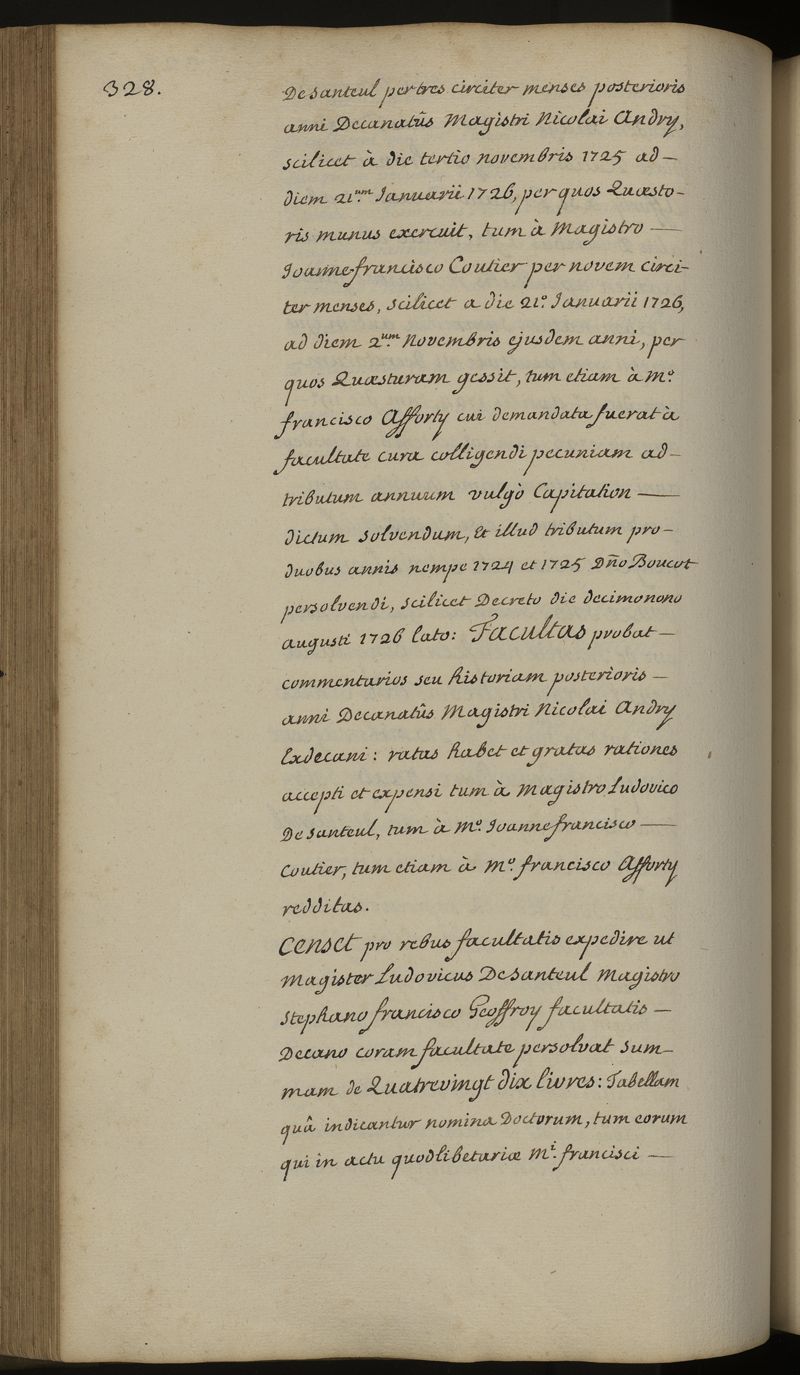 328.
De Santeul per tres circiter menses posterioris
anni Decanatûs Magistri Nicolai Andry,
scilicet à die tertio novembris 1725 ad —
diem 21.um Januarii 1726, per quos Quæsto-
ris munus exercuit, tum à Magistro —
Joanne francisco Coutier per novem circi-
ter menses, scilicet a die 21.o Januarii 1726,
ad diem 2.um Novembris ejusdem anni, per
quos Quæsturam gessit, tum etiam à M.o
francisco Afforty cui demandata fuerat à
facultate cura colligendi pecuniam ad —
tributum annuum vulgò Capitation —
dictum solvendum, Et illud tributum pro —
duobus annis nempe 1724 et 1725 Dño Boucot
persolvendi, scilicet Decreto die decimonono
augusti 1726 lato: Facultas probat —
commentarios seu historiam posterioris —
anni Decanatûs Magistri Nicolai Andry
Exdecani: ratas habet et gratas rationes
accepti et expensi tum à Magistro Ludovico
De Santeul, tum à M.o Joanne francisco —
Coutier, tum etiam à M.o francisco Afforty
redditas.
Censet pro rebus facultatis expedire ut
Magister Ludovicus De Santeul Magistro
Stephano francisco Geoffroy facultatis —
Decano coram facultate persolvat Sum-
mam de Quatrevingt dix livres: Tabellam
quâ indicantur nomina Doctorum, tum eorum
qui in actu quodlibetariæ M.i francisci —